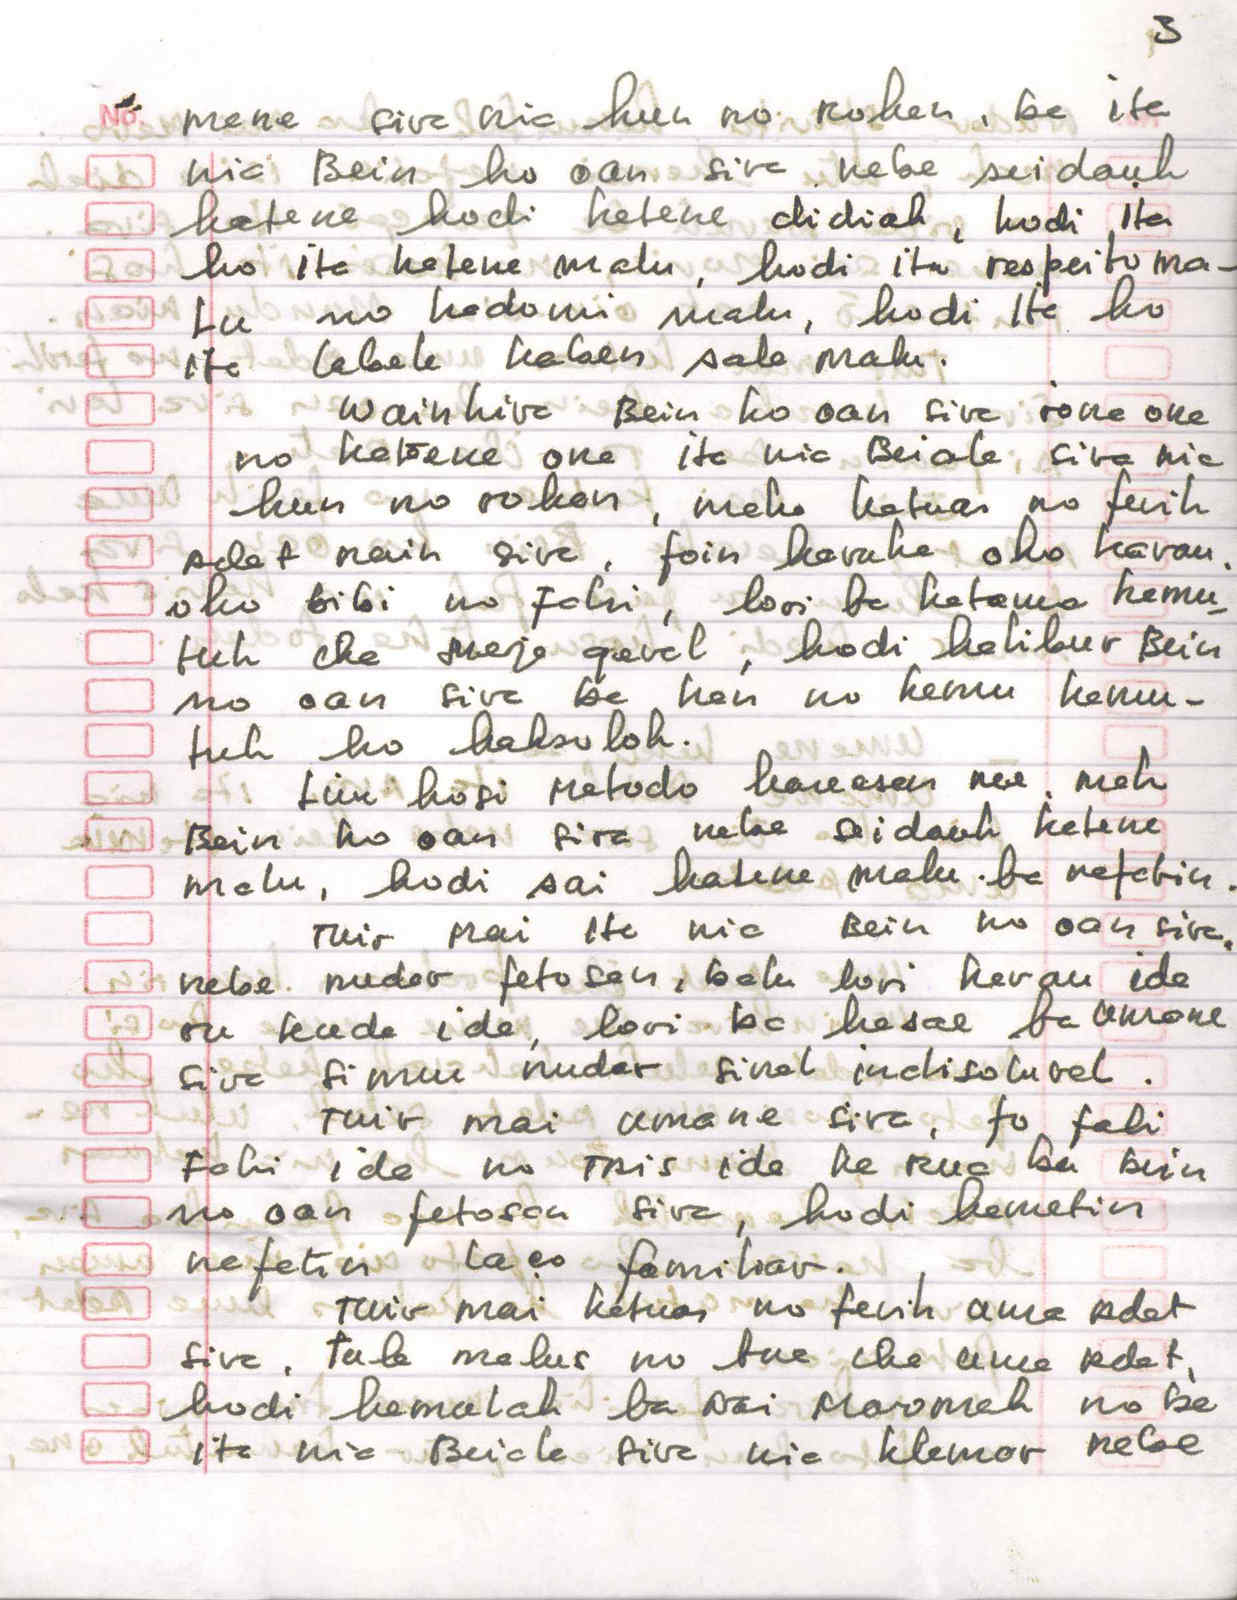 3
No. mane sira nia hun no rohan, ba ita
nia Bein ho oan sira nebe seidauh
hatene hodi hatene didiah, hodi ita
ho ita hatene malu, hodi ita respeito ma-
lu no hadomi malu, hodi ita ho
ita labele haben sala malu.
Wainhira Bein ho oan sira rona ona
no hatene ona ita nia Beiala sira nia
hun no rohan, maka hatuas no ferih
adat nain sira, foin haruka oho karau,
oho bibi no Fahi, lori ba hatama hamu-
tuh iha meja geral, hodi halibur Bein
no oan sira ba han no hemu hamu-
tuh ho haksoloh.
Liu hosi metodo hanesan nee, mah
Bein ho oan sira nebe seidauh hatene
malu, hodi sai hatene malu ba nafatin.
Tuir mai ita nia Bein no oan sira,
nebe nudar fetosan, balu lori karau ida
ou kuda ida, lori ba hasae ba umane
sira simu nudar sinal indisoluvel.
Tuir mai umane sira, fo fali
Fahi ida no Tais ida ka rua ba Bein
no oan fetosan sira, hodi hametin
nafatin laço familiar.
Tuir mai hatuas no ferih uma adat
sira, tula malus no tua iha uma adat,
hodi hamulah ba nai Maromah no ba
ita nia Beiala sira nia klamar nebe